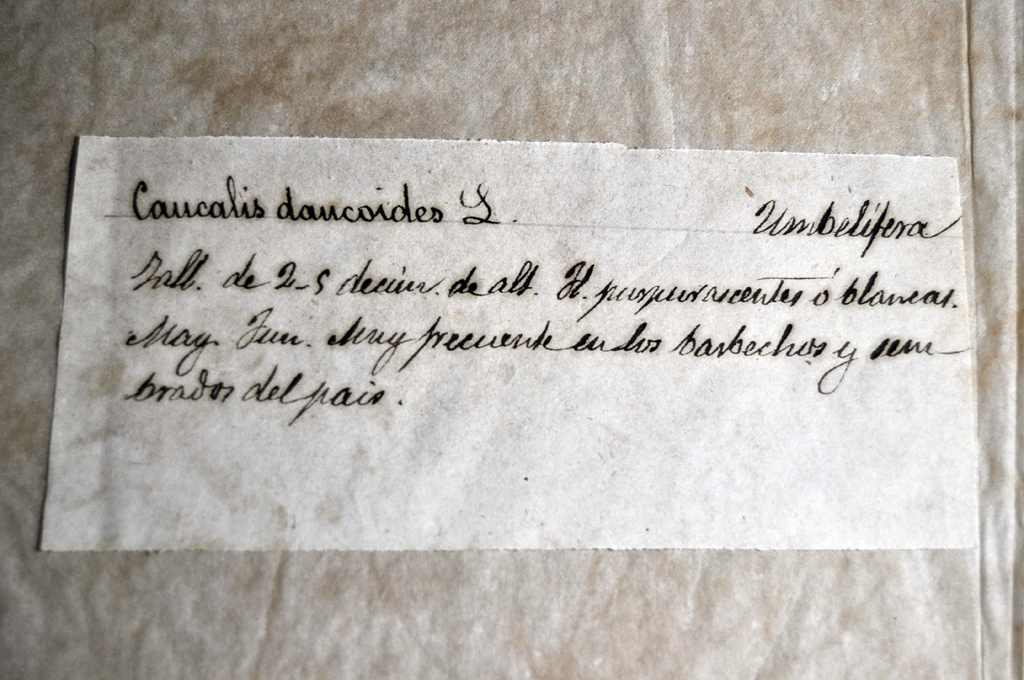 Caucalis daucoides L. Umbelífera
Tall. de 2-5 decim. de alt. Fl. purpurascentes ó blancas.
May. Jun. Muy frecuente en los barbechos y sem-
brados del pais.